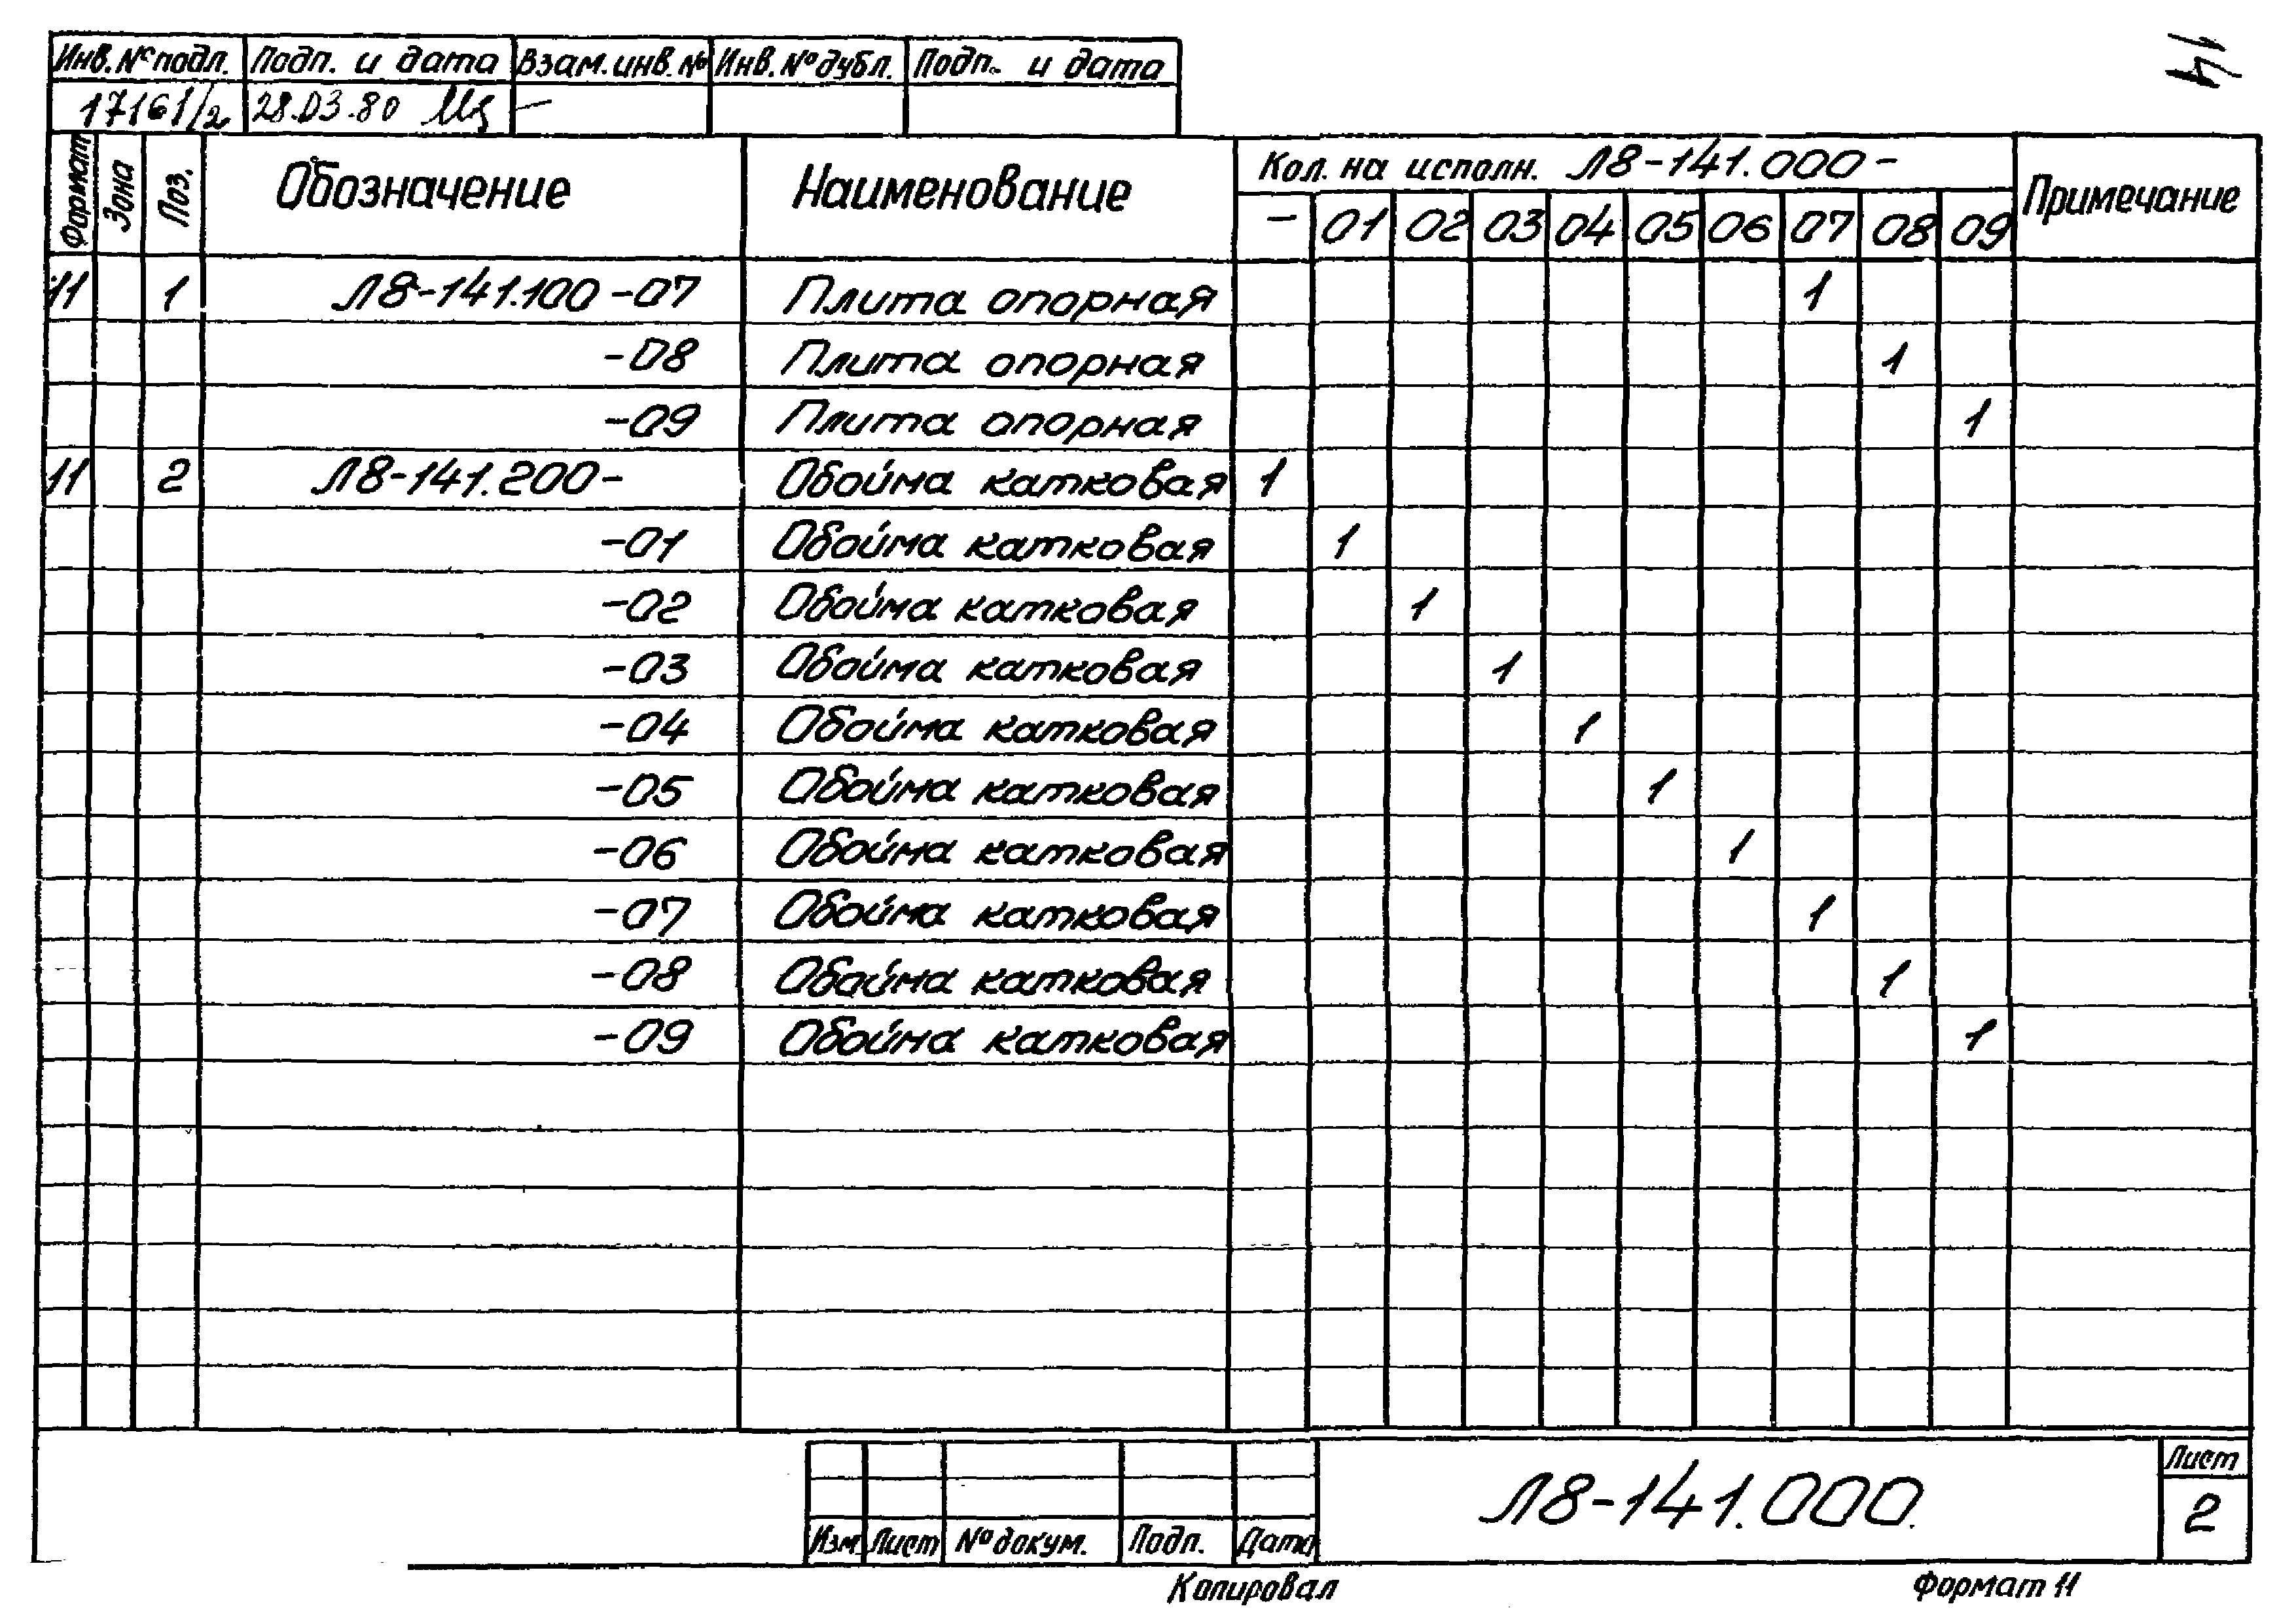 14
Инв.№ подл. Подп. и дата Взам.инв.№ Инв.№ дубл. Подп. и дата
17161/2 28.03.80 —
Формат Зона Поз. Обозначение Наименование Кол. на исполн. Л8-141.000- Примечание
- 01 02 03 04 05 06 07 08 09
11 1 Л8-141.100-07 Плита опорная 1
-08 Плита опорная 1
-09 Плита опорная 1
11 2 Л8-141.200- Обойма катковая 1
-01 Обойма катковая 1
-02 Обойма катковая 1
-03 Обойма катковая 1
-04 Обойма катковая 1
-05 Обойма катковая 1
-06 Обойма катковая 1
-07 Обойма катковая 1
-08 Обойма катковая 1
-09 Обойма катковая 1
Изм Лист № докум. Подп. Дата Л8-141.000. Лист
2
Копировал Формат 11